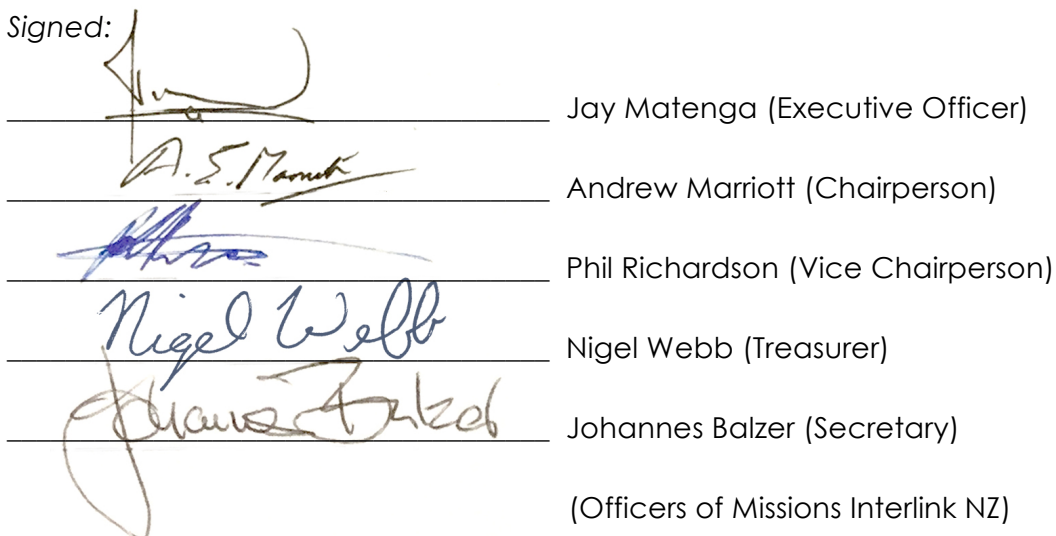 Signed:
Jay Matenga (Executive Officer)
A. E. Marriott Andrew Marriott (Chairperson)
Phil Richardson (Vice Chairperson)
Nigel Webb Nigel Webb (Treasurer)
Johannes Balzer Johannes Balzer (Secretary)
(Officers of Missions Interlink NZ)